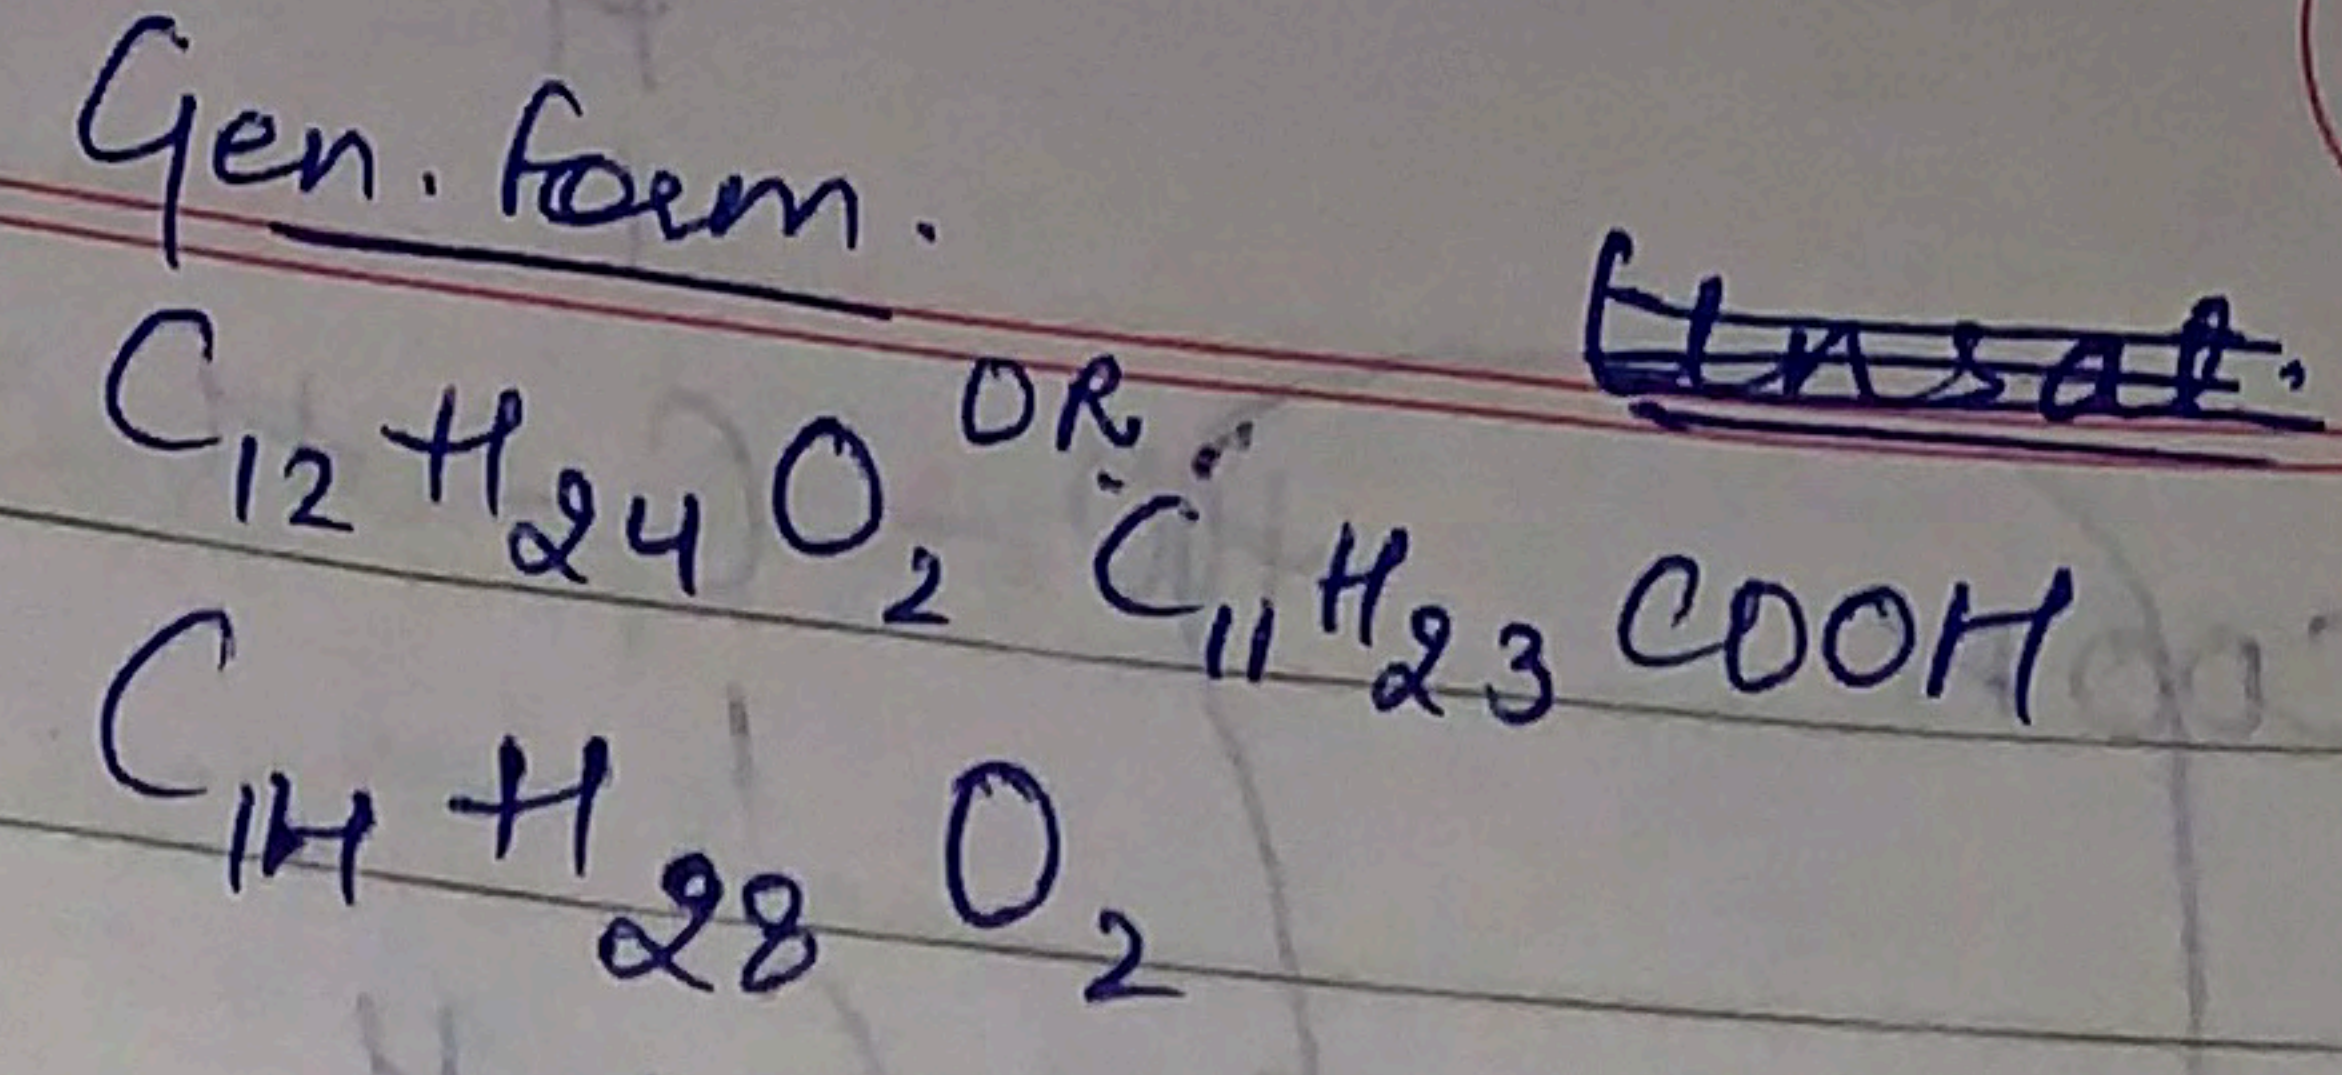 Gen. Form.
Unsat.
C₁₂H₂₄O₂ OR C₁₁H₂₃COOH
C₁₄H₂₈O₂